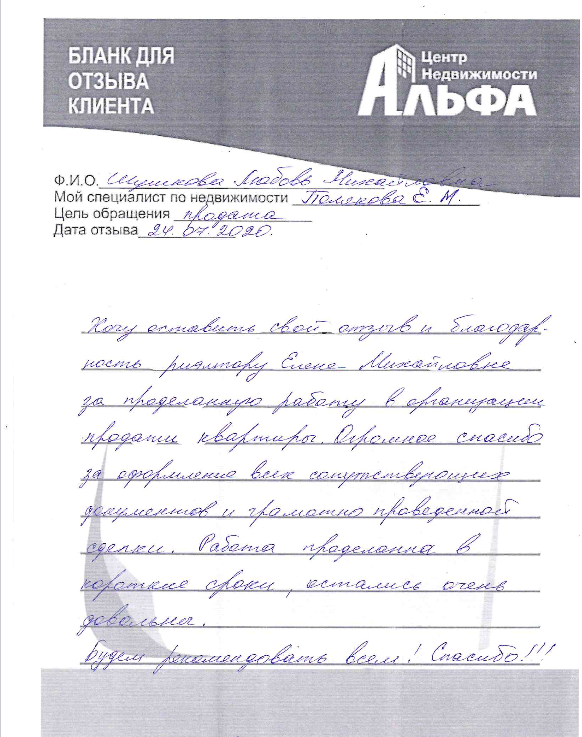 БЛАНК ДЛЯ
ОТЗЫВА
КЛИЕНТА
Центр
Недвижимости
АЛЬФА
Ф.И.О. Шушкова Любовь Михайловна
Мой специалист по недвижимости Полекова Е. М.
Цель обращения продажа
Дата отзыва 24.07.2020.
Хочу оставить свой отзыв и благодар-
ность риялтору Елене Михайловне
за проделанную работу в организации
продажи квартиры. Огромное спасибо
за оформление всех сопутствующих
документов и грамотно проведенной
сделки. Работа проделанна в
короткие сроки, остались очень
довольны.
Будем рекомендовать всем! Спасибо!!!